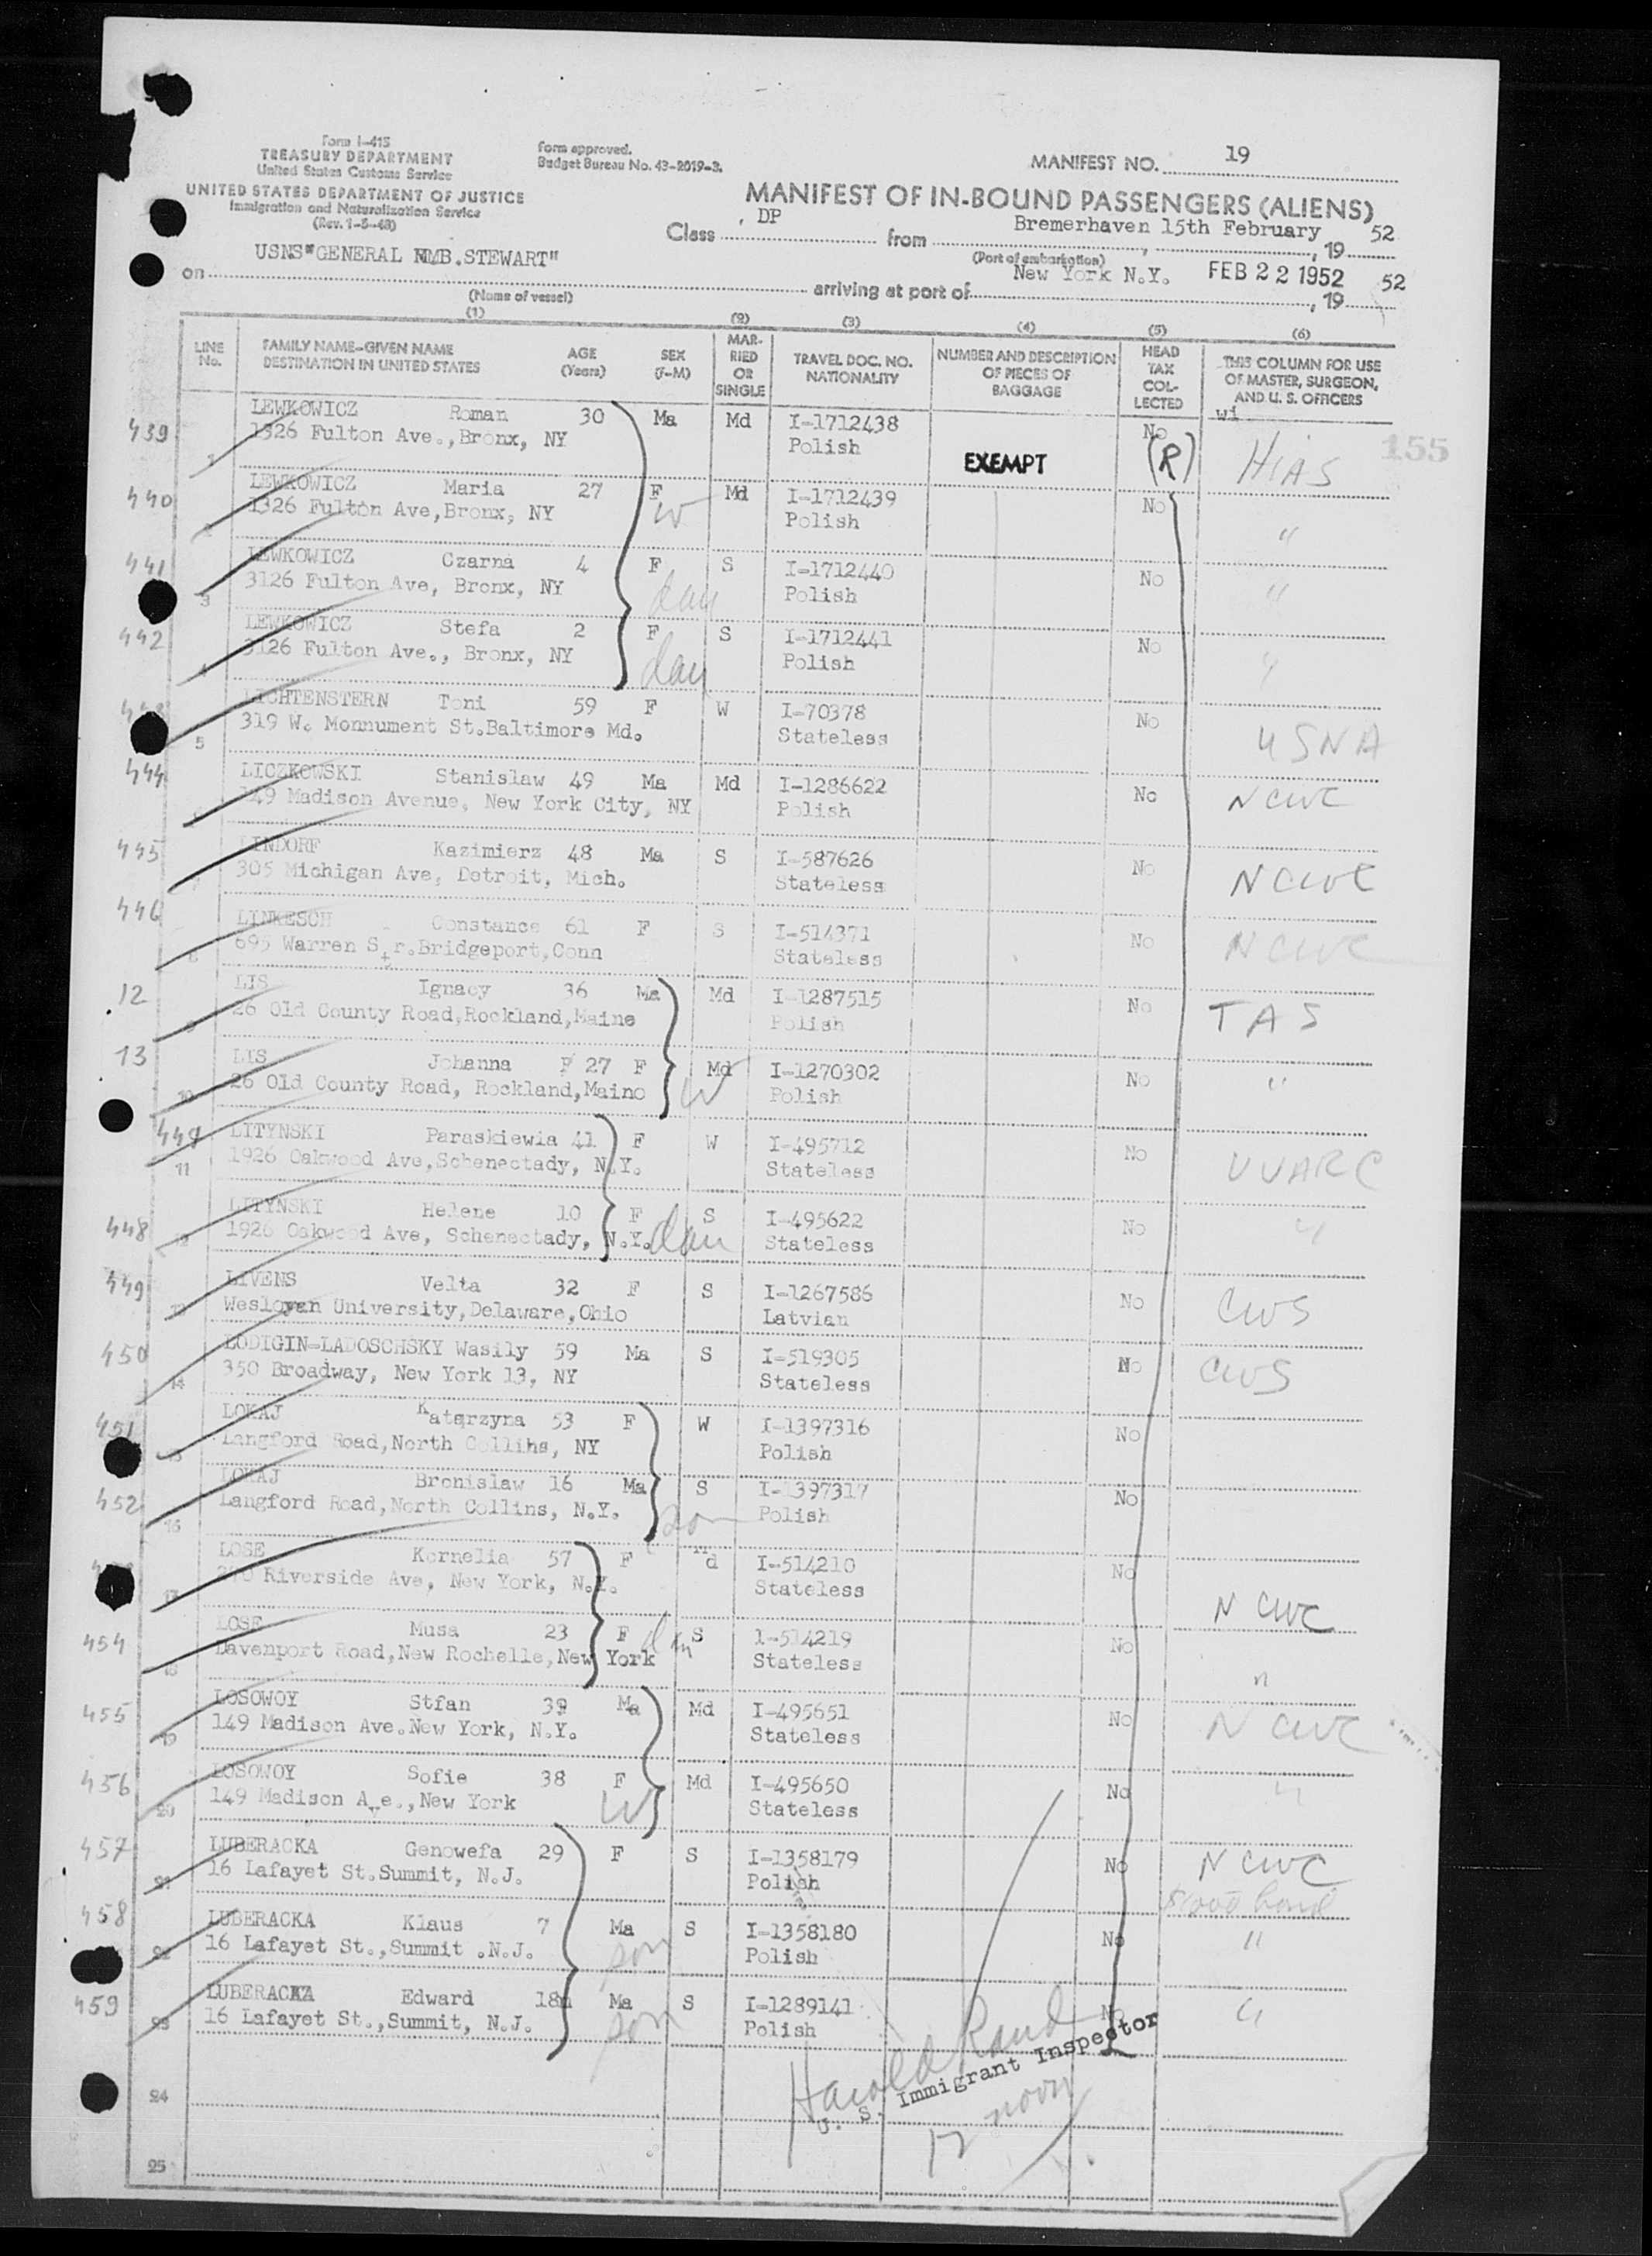 Form I-415
TREASURY DEPARTMENT
United States Customs Service
UNITED STATES DEPARTMENT OF JUSTICE
Immigration and Naturalization Service
(Rev. 1-5-48)
Form approved.
Budget Bureau No. 43-2019-3.
MANIFEST NO. 19
MANIFEST OF IN-BOUND PASSENGERS (ALIENS)
Class DP from Bremerhaven 15th February, 19 52
(Port of embarkation)
on USNS "GENERAL MB.STEWART" arriving at port of New York N.Y. FEB 22 1952, 19 52
(Name of vessel)
(1) (2) (3) (4) (5) (6)
LINE No. FAMILY NAME-GIVEN NAME DESTINATION IN UNITED STATES AGE (Years) SEX (F-M) MARRIED OR SINGLE TRAVEL DOC. NO. NATIONALITY NUMBER AND DESCRIPTION OF PIECES OF BAGGAGE HEAD TAX COLLECTED THIS COLUMN FOR USE OF MASTER, SURGEON, AND U. S. OFFICERS
wi
155
439 LEWKOWICZ Roman 30 Ma Md I-1712438 No
1 1326 Fulton Ave., Bronx, NY Polish EXEMPT (R) HIAS
440 LEWKOWICZ Maria 27 F W Md I-1712439 No "
2 1326 Fulton Ave, Bronx, NY Polish
441 LEWKOWICZ Czarna 4 F S I-1712440 No "
3 3126 Fulton Ave, Bronx, NY dau Polish
442 LEWKOWICZ Stefa 2 F S I-1712441 No "
4 3126 Fulton Ave., Bronx, NY dau Polish
443 LICHTENSTERN Toni 59 F W I-70378 No USNA
5 319 W. Monnument St.Baltimore Md. Stateless
444 LICZKOWSKI Stanislaw 49 Ma Md I-1286622 No NCWC
6 149 Madison Avenue, New York City, NY Polish
445 LINDORF Kazimierz 48 Ma S I-587626 No NCWC
7 305 Michigan Ave, Detroit, Mich. Stateless
446 LINKESCH Constance 61 F S I-514371 No NCWC
8 695 Warren Str.Bridgeport,Conn Stateless
12 LIS Ignacy 36 Ma Md I-1287515 No TAS
9 26 Old County Road,Rockland,Maine Polish
13 LIS Johanna F 27 F W Md I-1270302 No "
10 26 Old County Road, Rockland,Maine Polish
447 LITYNSKI Paraskiewia 41 F W I-495712 No UUARC
11 1926 Oakwood Ave,Schenectady, N.Y. Stateless
448 LITYNSKI Helene 10 F S I-495622 No "
12 1926 Oakwood Ave, Schenectady, N.Y. dau Stateless
449 LIVENS Velta 32 F S I-1267586 No CWS
13 Wesleyan University,Delaware,Ohio Latvian
450 LODIGIN-LADOSCHSKY Wasily 59 Ma S I-519305 No CWS
14 350 Broadway, New York 13, NY Stateless
451 LOKAJ Katarzyna 53 F W I-1397316 No
15 Langford Road,North Collihs, NY Polish
452 LOKAJ Bronislaw 16 Ma S I-1397317 No
16 Langford Road,North Collins, N.Y. son Polish
LOSE Kornelia 57 F Md I-514210 No NCWC
17 Riverside Ave, New York, N.Y. Stateless
454 LOSE Musa 23 F dau S I-514219 No "
18 Davenport Road,New Rochelle,New York Stateless
455 LOSOWOY Stfan 39 Ma Md I-495651 No NCWC
19 149 Madison Ave.New York, N.Y. Stateless
456 LOSOWOY Sofie 38 F W Md I-495650 No "
20 149 Madison Ave.,New York Stateless
457 LUBERACKA Genowefa 29 F S I-1358179 No NCWC
21 16 Lafayet St.Summit, N.J. Polish $1000 bond
458 LUBERACKA Klaus 7 Ma S I-1358180 No "
22 16 Lafayet St.,Summit .N.J. son Polish
459 LUBERACKA Edward 18m Ma S I-1289141 No "
23 16 Lafayet St.,Summit, N.J. son Polish
Harold Rand
U. S. Immigrant Inspector
24
12 noon
25